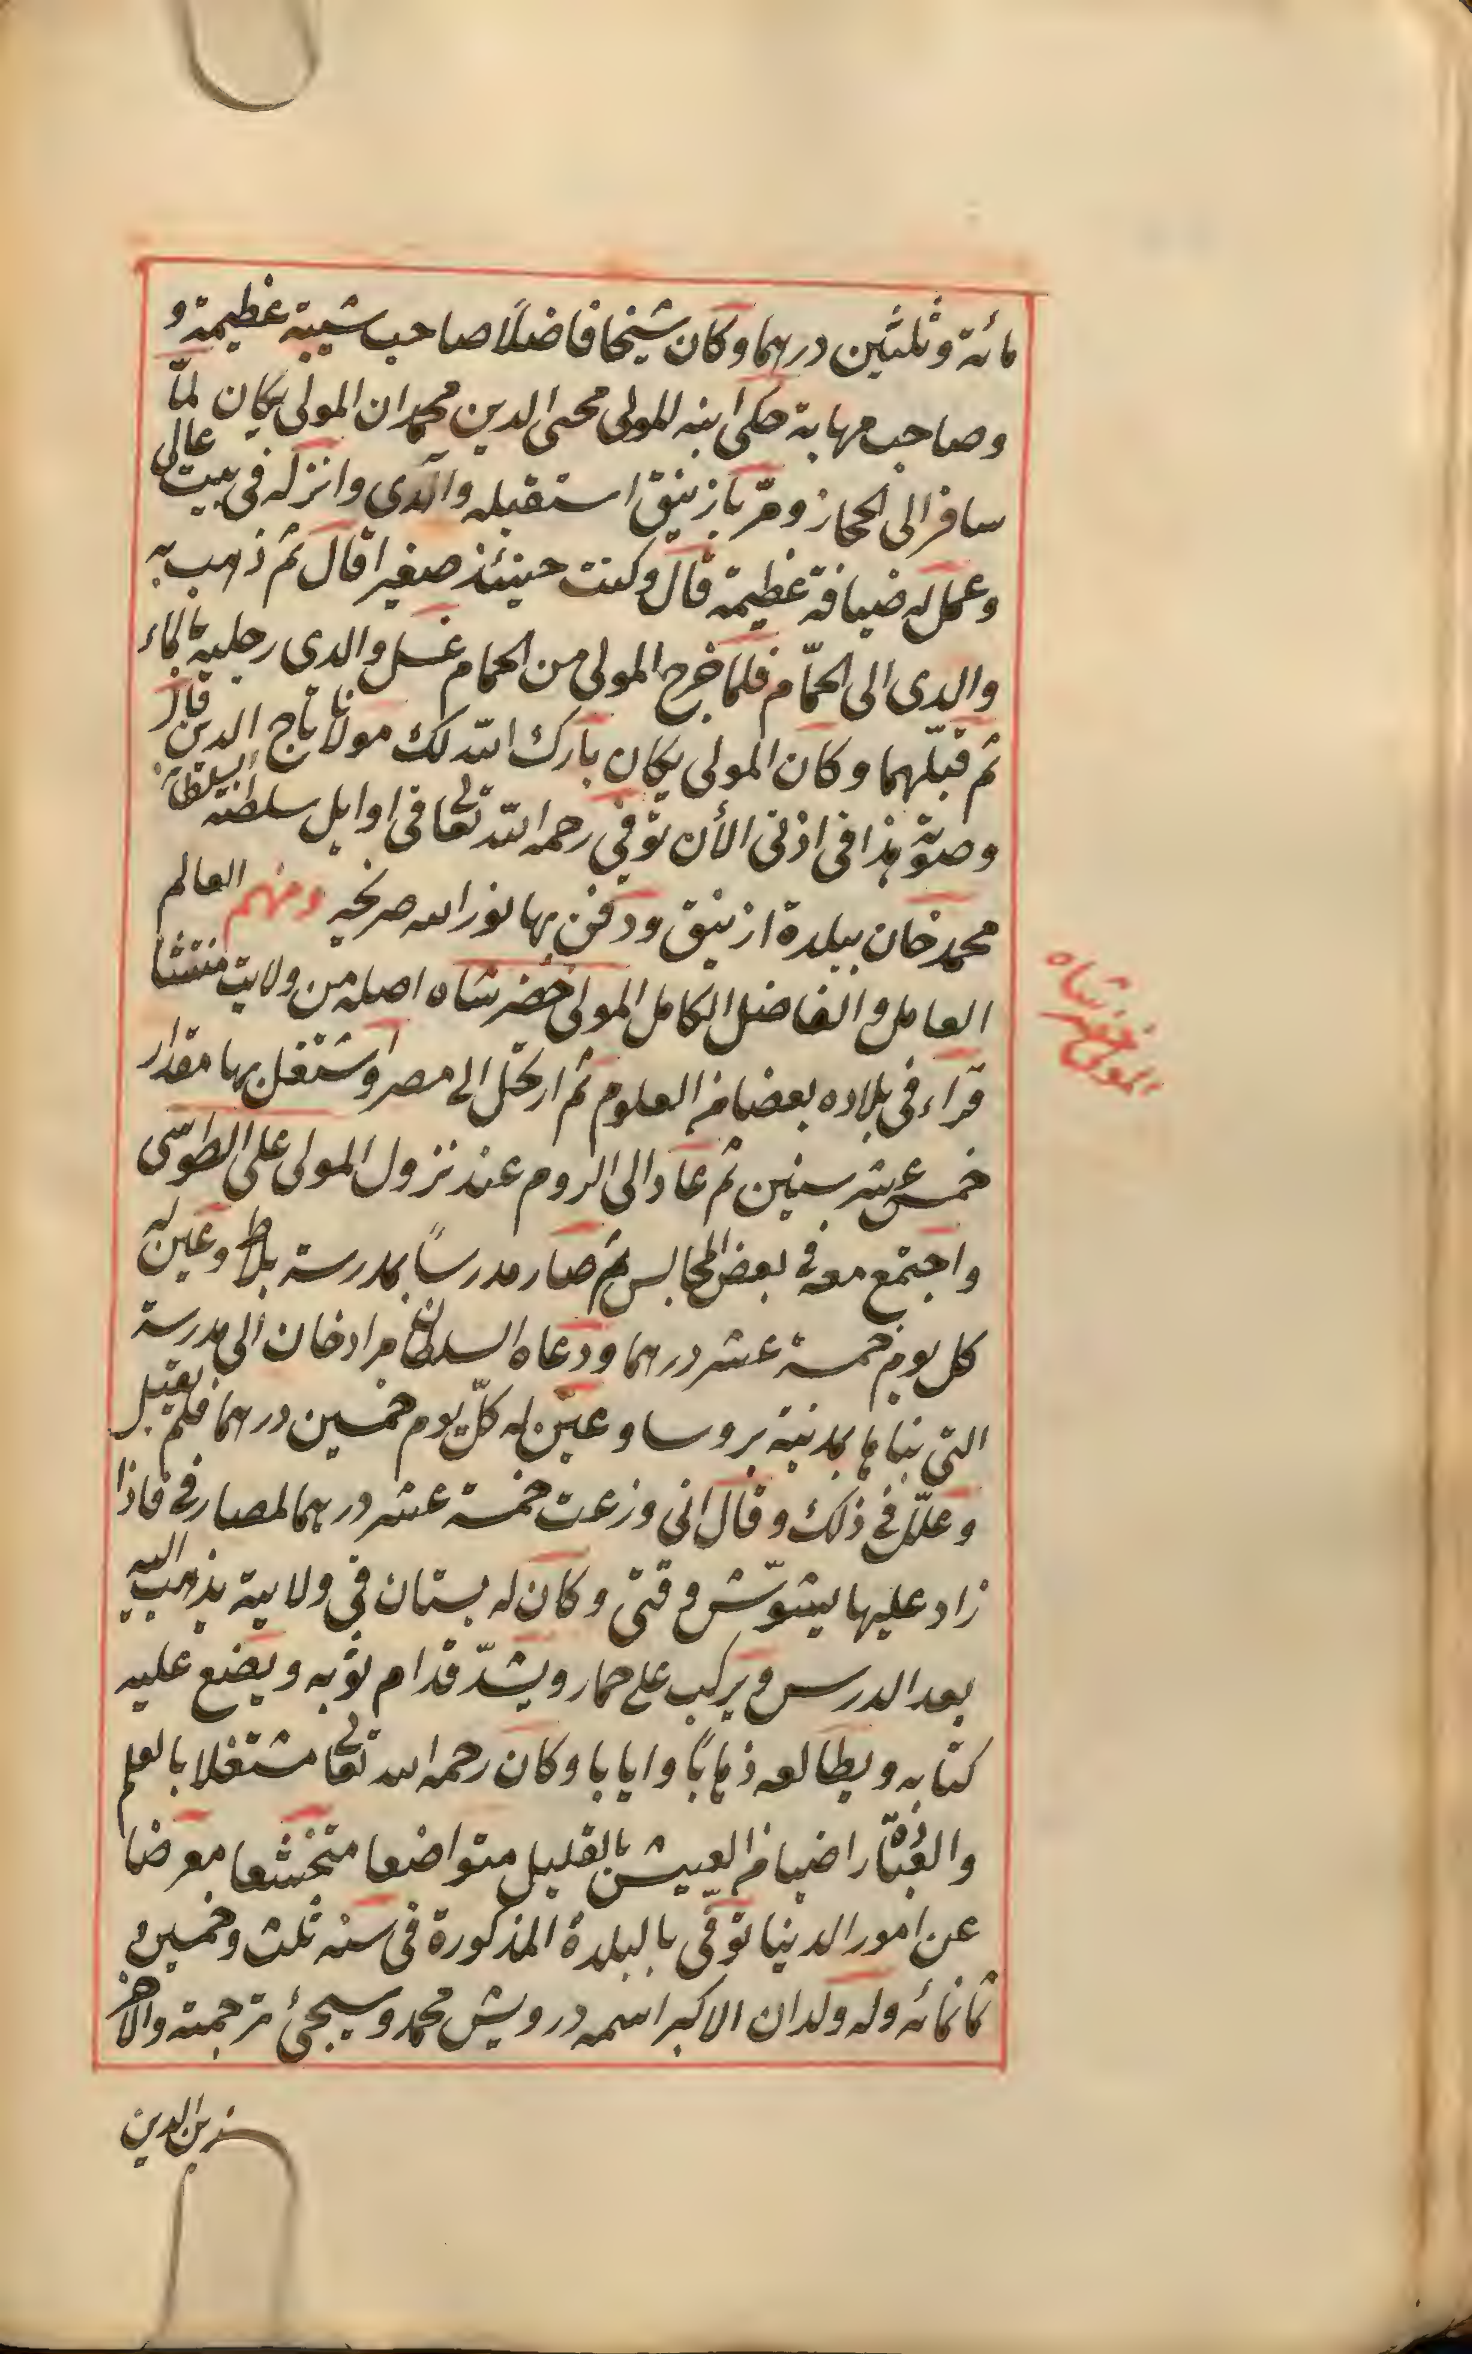 مائة وثلثين درهما وكان شيخا فاضلًا صاحب شيبة عظيمة و
وصاحب مهابة حكى ابنه المولى محيى الدين محمد ان المولى يكان لمّا
سافر الى الحجاز ومرّ بازنيق استقبله والدى وانزله فى بيت عالى
وعمل له ضيافة عظيمة قال وكنت حينئذ صغيرا قال ثم ذهب به
والدى الى الحمّام فلما خرج المولى من الحمام غسل والدى رجليه بالماء
ثم قبّلهما وكان المولى يكان بارك الله لك مولانا تاج الدين قال
وصوته هذا فى اذنى الأن توفى رحمه الله تعالى فى اوايل سلطنة السلطان
محمد خان ببلدة ازنيق ودفن بها نور الله ضريحه ومنهم العالم
العامل والفاضل الكامل المولى خضر شاه اصله من ولايت منتشا
المولى خضر شاه
قراء فى بلاده بعضا من العلوم ثم ارتحل الى مصر واشتغل بها مقدار
خمس عشر سنين ثم عاد الى الروم عند نزول المولى على الطوسى
واجتمع معه فى بعض المجالس ثم صار مدرساً بمدرسة بلاط وعين له
كل يوم خمسة عشر درهما ودعاه السلطان مراد خان الى مدرسة
التى بناها بمدنية بروسا وعيّن له كلّ يوم خمسين درهما فلم يقبل
وعلّل فى ذلك وقال انى وزعت خمسة عشر درهما لمصارفى فاذا
زاد عليها يشوّش وقتى وكان له بستان فى ولايية يذهب اليه
بعد الدرس ويركب على حمار ويشدّ قدام ثوبه ويضع عليه
كتابه ويطالعه ذهاباً وايابا وكان رحمه الله تعالى مشتغلا بالعلم
والعبادة راضيا من العيش بالقليل متواضعا متخشعا معرضا
عن امور الدينا توفّى بالبلدة المذكورة فى سنه ثلث وخمسين و
ثمانمائه وله ولدان الاكبر اسمه درويش محمد وسيجئ ترجمته والاخر
زين الدين